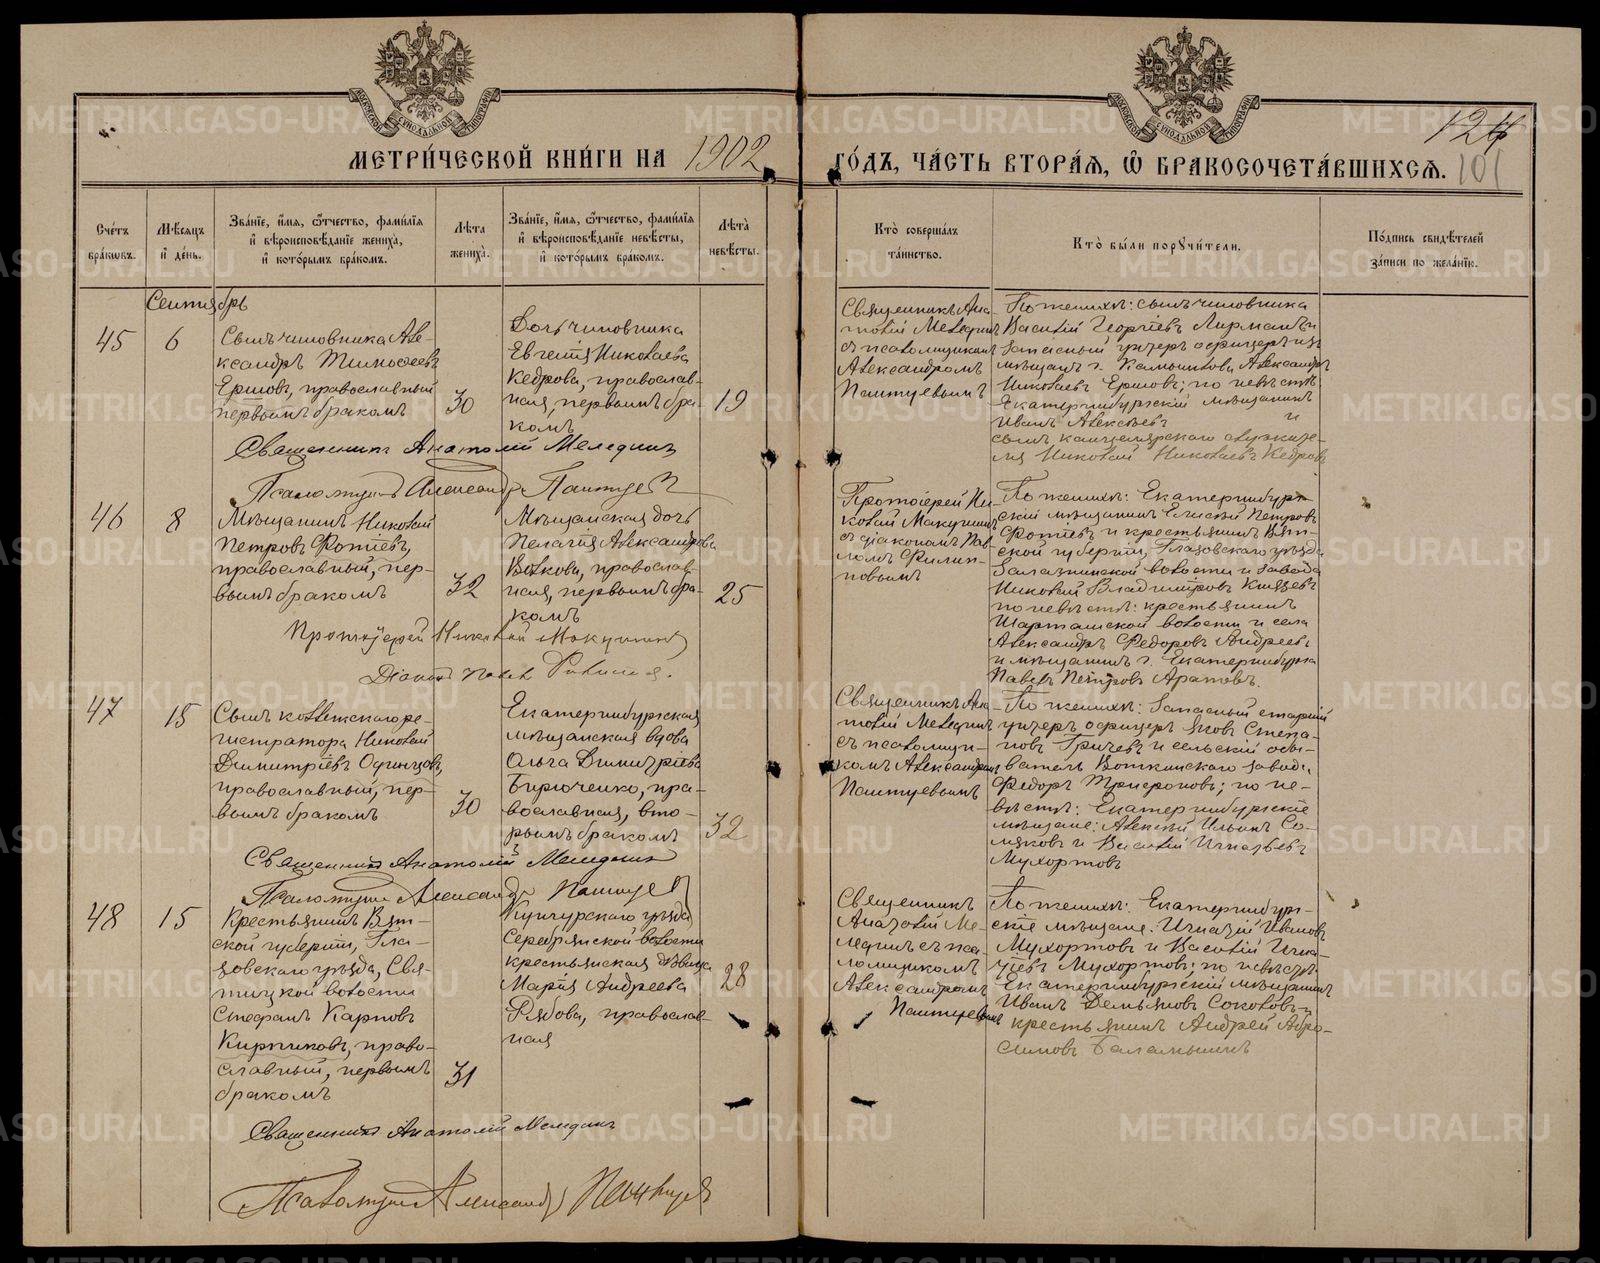 МЕТРИЧЕСКОЙ КНИГИ НА 1902
ГОДЪ, ЧАСТЬ ВТОРАЯ, Ѡ БРАКОСОЧЕТАВШИХСЯ.
124
101
Счетъ браковъ.
Мѣсяцъ и день.
Званіе, имя, отчество, фамилія
и вѣроисповѣданіе жениха,
и которымъ бракомъ.
Лѣта жениха.
Званіе, имя, отчество, фамилія
и вѣроисповѣданіе невѣсты,
и которымъ бракомъ.
Лѣта невѣсты.
Кто совершалъ
таинство.
Кто были поручители.
Подпись свидѣтелей
записи по желанію.
Сентябрь
45
6
Сынъ чиновника Але-
ксандръ Тимофеевъ
Ершовъ, православный
первымъ бракомъ
30
Дочь чиновника
Евгенія Николаева
Кедрова, православ-
ная, первымъ бра-
комъ
19
Священникъ Ана-
толій Мелединъ
съ псаломщикомъ
Александромъ
Пантуевымъ
По женихѣ: сынъ чиновника
Василій Георгіевъ
запасный унтеръ офицеръ изъ
мѣщанъ г. Камышлова, Александръ
Николаевъ Ершовъ; по невѣстѣ:
Екатеринбургскій мѣщанинъ
Иванъ Алексѣевъ и
сынъ канцелярскаго служите-
ля Николай Николаевъ Кедровъ
Священникъ Анатолій Меледин
Псаломщикъ Александр Пантуев
46
8
Мѣщанинъ Николай
Петровъ Фотіевъ,
православный, пер-
вымъ бракомъ
32
Мѣщанская дочь
Пелагія Александрова
Волкова, православ-
ная, первымъ бра-
комъ
25
Протоіерей Ни-
колай Макушинъ
съ діакономъ Пав-
ломъ Филип-
повымъ
По женихѣ: Екатеринбург-
скій мѣщанинъ Елисѣй Петровъ
Фотіевъ и крестьянинъ Вят-
ской губерніи, Глазовскаго уѣзда
Залазнинской волости и завода
Николай Владиміровъ Князевъ
по невѣстѣ: крестьянинъ
Шарташской волости и села
Александръ Федоровъ Андреевъ
и мѣщанинъ г. Екатеринбурга
Павелъ Петровъ Аратовъ.
Протоіерей Николай Макушин
Діаконъ Павел Филиппов.
47
15
Сынъ коллежскаго ре-
гистратора Николай
Димитріевъ Одинцовъ,
православный, пер-
вымъ бракомъ
30
Екатеринбургская
мѣщанская вдова
Ольга Димитріева
Бирюченко, пра-
вославная, вто-
рымъ бракомъ
32
Священникъ Ана-
толій Мелединъ
съ псаломщи-
комъ Александромъ
Пантуевымъ
По женихѣ: запасный старшій
унтеръ офицеръ Яковъ Степа-
новъ Гричевъ и сельскій обы-
ватель Воткинскаго завода,
Федоръ Трифоновъ; по не-
вѣстѣ: Екатеринбургскіе
мѣщане: Алексѣй Ильинъ Со-
мяковъ и Василій Игнатьевъ
Мухортовъ
Священникъ Анатолій Меледин
Псаломщик Александр Пантуев
48
15
Крестьянинъ Вят-
ской губерніи, Гла-
зовскаго уѣзда, Свя-
тицкой волости
Стефанъ Карповъ
Кирпиковъ, право-
славный, первымъ
бракомъ
31
Кунгурскаго уѣзда
Серебрянской волости
крестьянская дѣвица
Марія Андреева
Рябова, православ-
ная
28
Священникъ
Анатолій Ме-
лединъ съ пса-
ломщикомъ
Александромъ
Пантуевымъ
По женихѣ: Екатеринбург-
скіе мѣщане: Игнатій Ивановъ
Мухортовъ и Василій Игна-
тіевъ Мухортовъ; по невѣстѣ:
Екатеринбургскій мѣщанинъ
Иванъ Демьяновъ Соколовъ и
крестьянинъ Андрей Абро-
симовъ Балакынинъ
Священникъ Анатолій Меледин
Псаломщик Александр Пантуев
METRIKI.GASO-URAL.RU